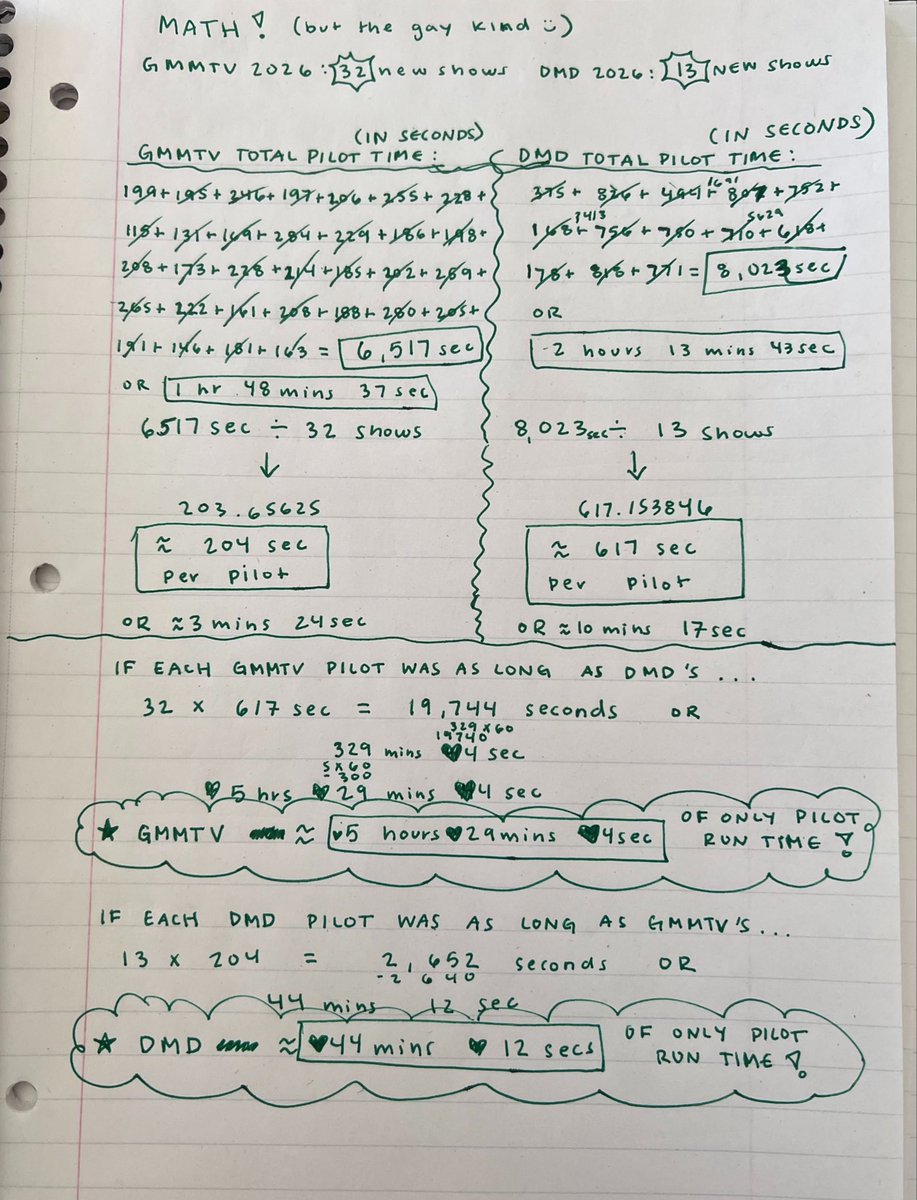 MATH! (but the gay kind :))
GMMTV 2026: 32 new shows DMD 2026: 13 NEW shows
(IN SECONDS)
GMMTV TOTAL PILOT TIME:
199+195+246+197+206+255+228+
115+131+169+284+229+186+198+
208+173+228+214+185+202+259+
265+222+161+208+188+280+205+
191+146+181+163 = 6,517 sec
OR 1 hr 48 mins 37 sec
6517 sec ÷ 32 shows
↓
203.65625
≈ 204 sec
per pilot
OR ≈ 3 mins 24 sec
(IN SECONDS)
DMD TOTAL PILOT TIME:
1691
375+ 826+ 494+ 807 +752+
3413 5629
168+ 756+ 750+ 710+ 618+
178+ 818+ 771= 8,023 sec
OR
2 hours 13 mins 43 sec
8,023 sec ÷ 13 shows
↓
617.153846
≈ 617 sec
per pilot
OR ≈ 10 mins 17 sec
IF EACH GMMTV PILOT WAS AS LONG AS DMD'S ...
32 x 617 sec = 19,744 seconds OR
329 x 60
19740
329 mins ♥4 sec
5 x 60
- 300
♥ 5 hrs ♥ 29 mins ♥4 sec
★ GMMTV ≈ ♥5 hours♥29 mins ♥4 sec OF ONLY PILOT
RUN TIME!
IF EACH DMD PILOT WAS AS LONG AS GMMTV'S ...
13 x 204 = 2,652 seconds OR
-2 640
44 mins 12 sec
★ DMD ≈ ♥44 mins ♥ 12 secs OF ONLY PILOT
RUN TIME!